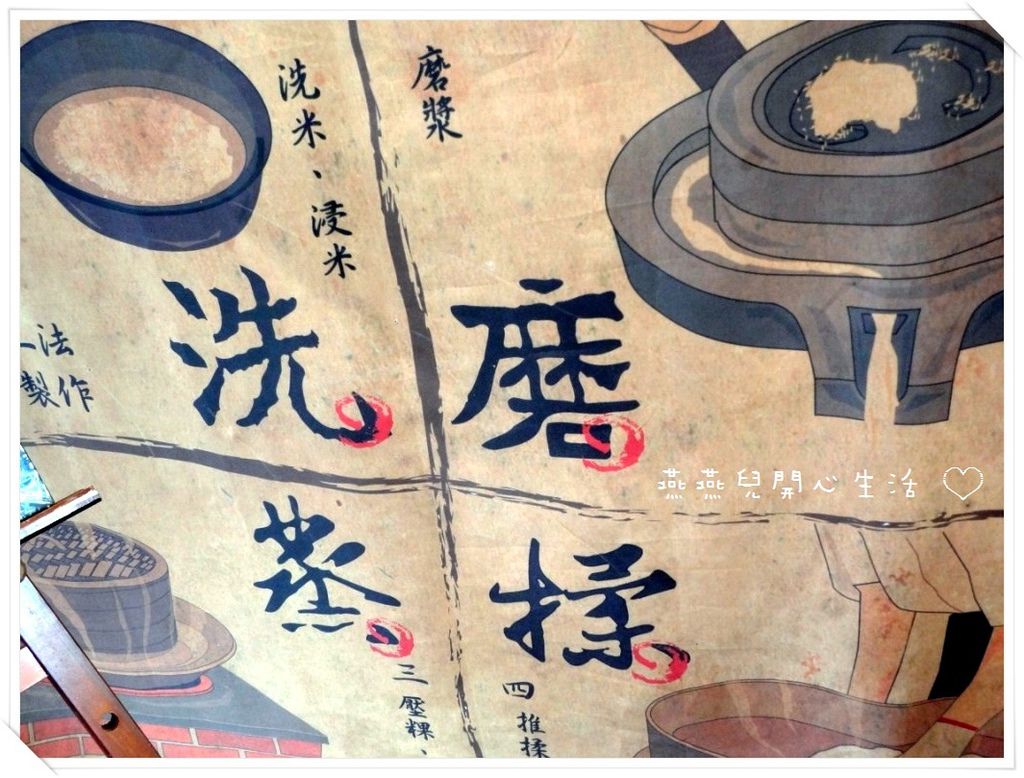 洗米、浸米
磨漿
洗
磨
法
製作
燕燕兒開心生活
蒸
揉
三壓粿、
四推揉